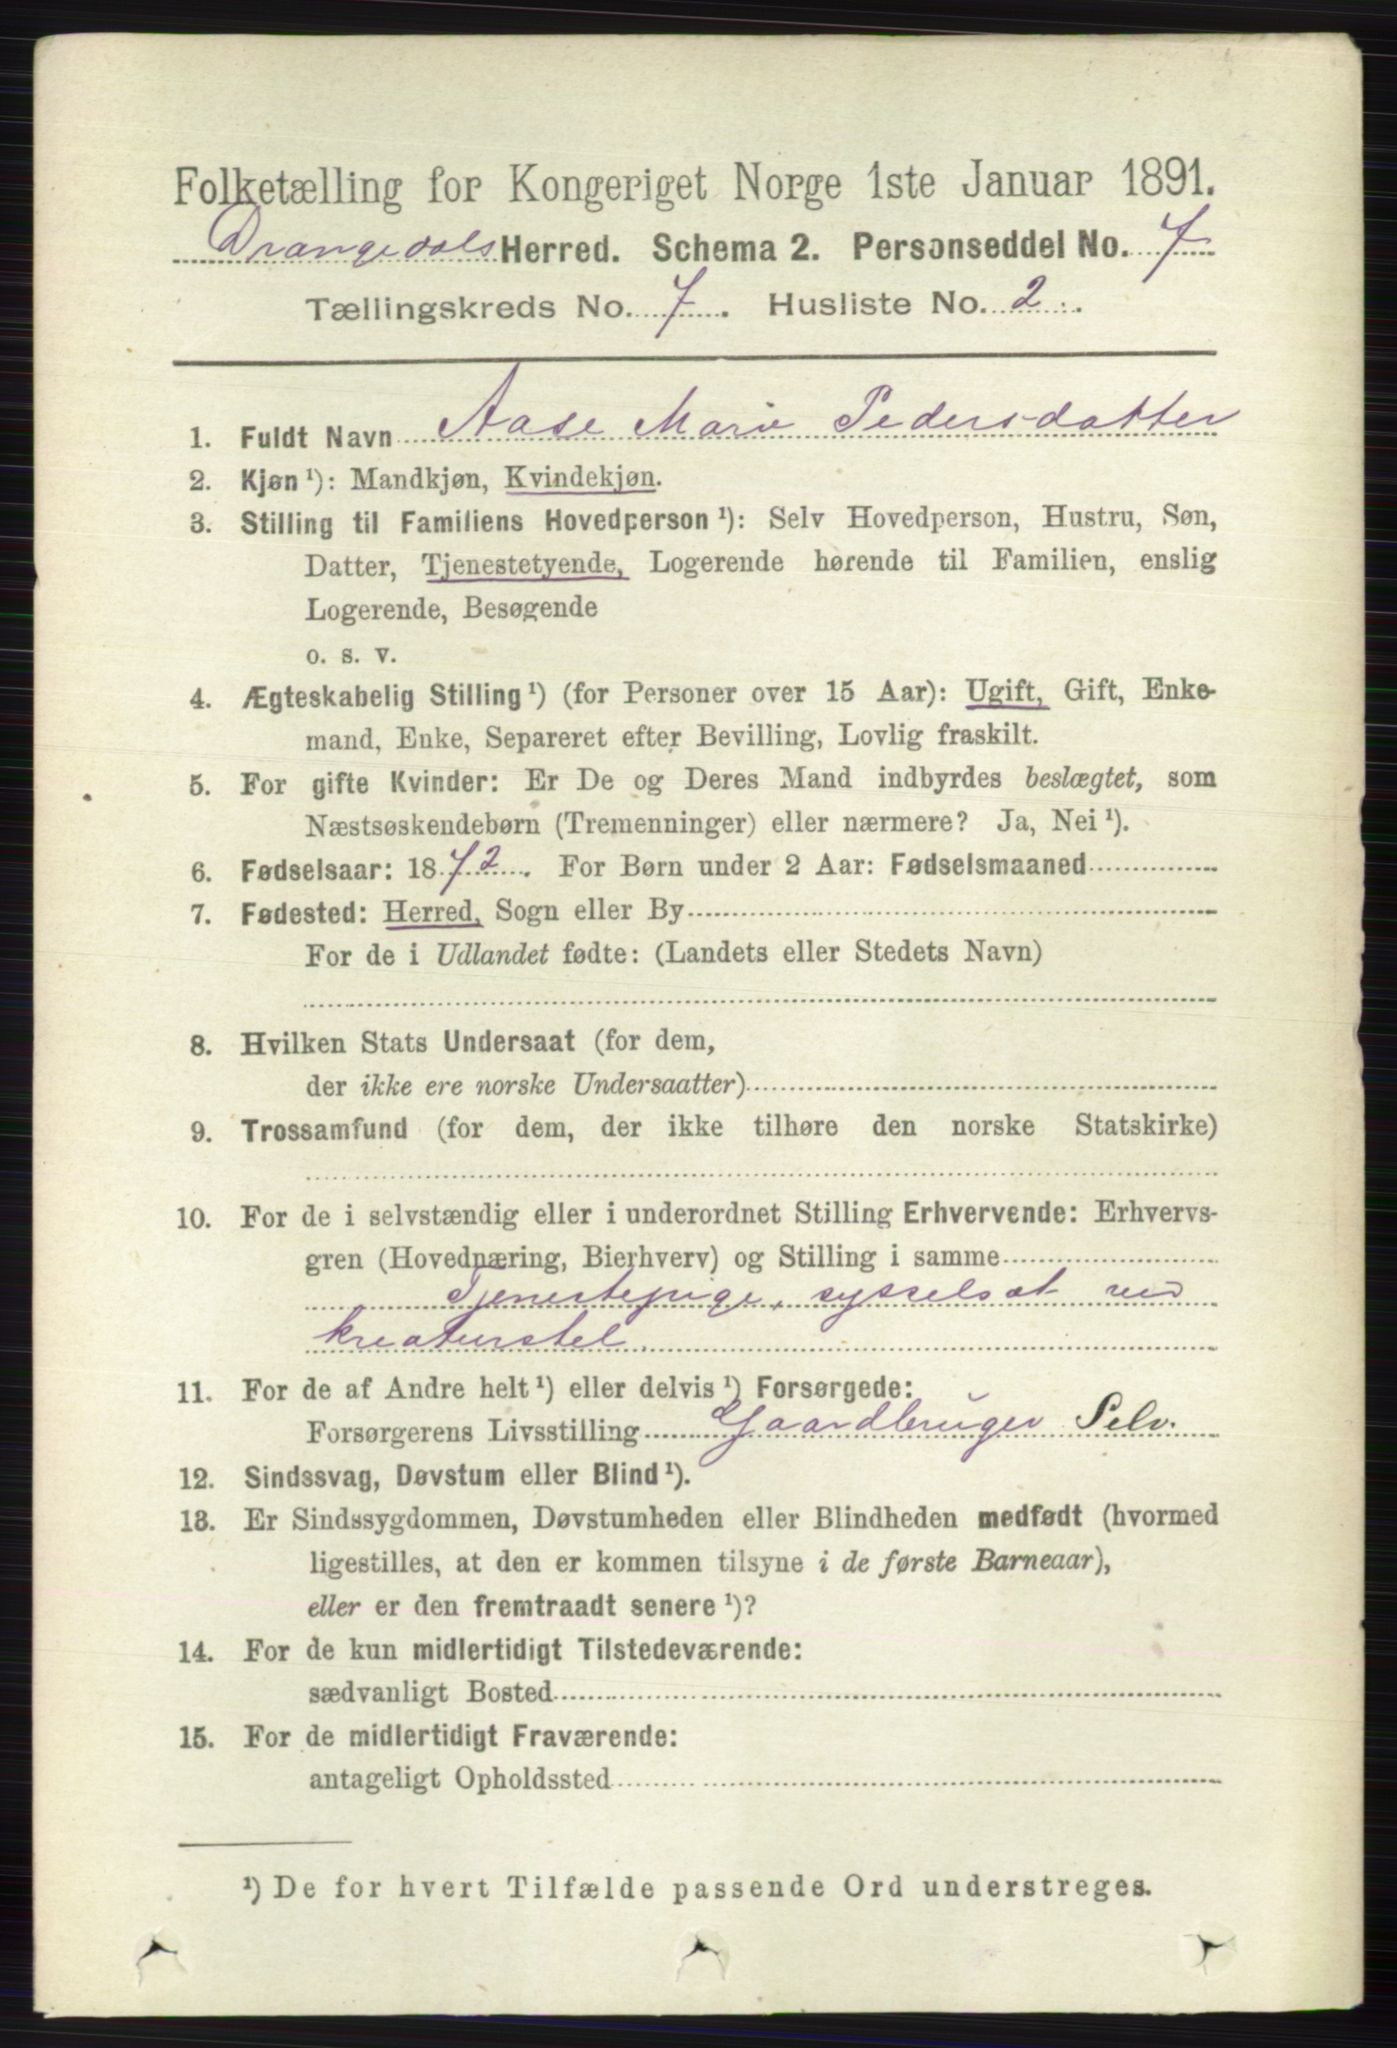 Folketælling for Kongeriget Norge 1ste Januar 1891.
Drangedals Herred. Schema 2. Personseddel No. 7
Tællingskreds No. 7. Husliste No. 2.
1. Fuldt Navn Aase Marie Pedersdatter
2. Kjøn ¹): Mandkjøn, Kvindekjøn.
3. Stilling til Familiens Hovedperson ¹): Selv Hovedperson, Hustru, Søn,
Datter, Tjenestetyende, Logerende hørende til Familien, enslig
Logerende, Besøgende
o. s. v.
4. Ægteskabelig Stilling ¹) (for Personer over 15 Aar): Ugift, Gift, Enke-
mand, Enke, Separeret efter Bevilling, Lovlig fraskilt.
5. For gifte Kvinder: Er De og Deres Mand indbyrdes beslægtet, som
Næstsøskendebørn (Tremenninger) eller nærmere? Ja, Nei ¹).
6. Fødselsaar: 1872. For Børn under 2 Aar: Fødselsmaaned
7. Fødested: Herred, Sogn eller By
For de i Udlandet fødte: (Landets eller Stedets Navn)
8. Hvilken Stats Undersaat (for dem,
der ikke ere norske Undersaatter)
9. Trossamfund (for dem, der ikke tilhøre den norske Statskirke)
10. For de i selvstændig eller i underordnet Stilling Erhvervende: Erhvervs-
gren (Hovednæring, Bierhverv) og Stilling i samme
Tjenestepige, sysselsat ved
kreaturstel.
11. For de af Andre helt ¹) eller delvis ¹) Forsørgede:
Forsørgerens Livsstilling Gaardbruger Selv.
12. Sindssvag, Døvstum eller Blind ¹).
13. Er Sindssygdommen, Døvstumheden eller Blindheden medfødt (hvormed
ligestilles, at den er kommen tilsyne i de første Barneaar),
eller er den fremtraadt senere ¹)?
14. For de kun midlertidigt Tilstedeværende:
sædvanligt Bosted
15. For de midlertidigt Fraværende:
antageligt Opholdssted
¹) De for hvert Tilfælde passende Ord understreges.